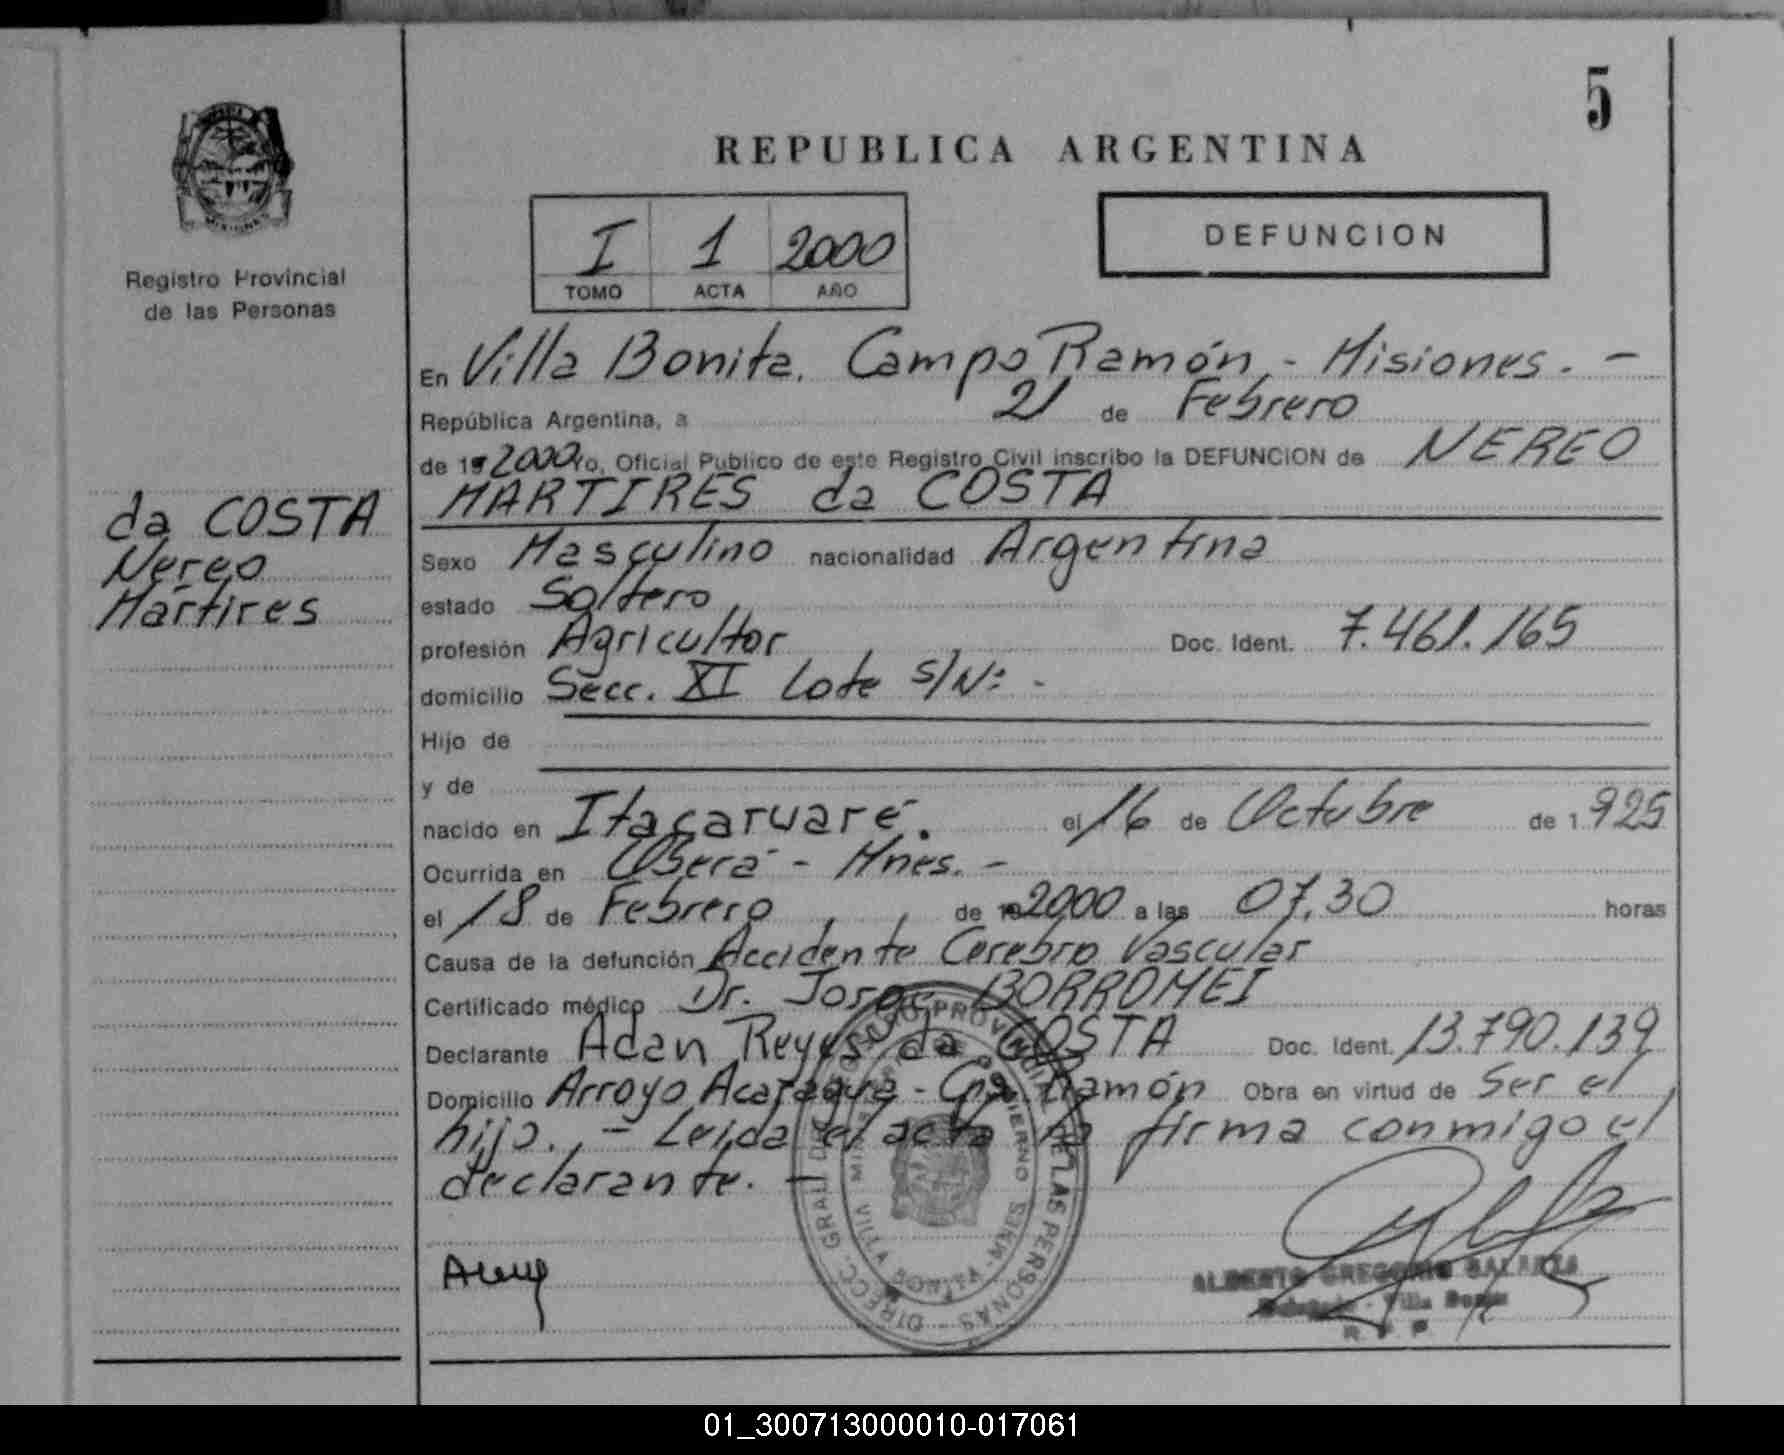 5
REPUBLICA ARGENTINA
Registro Provincial
de las Personas
I 1 2000
TOMO ACTA AÑO
DEFUNCION
da COSTA
Nereo
Martires
En Villa Bonita. Campo Ramón - Misiones. -
República Argentina, a 21 de Febrero
de 2000 Yo, Oficial Publico de este Registro Civil inscribo la DEFUNCION de NEREO
MARTIRES da COSTA
Sexo Masculino nacionalidad Argentina
estado Soltero
profesión Agricultor Doc. Ident. 7.461.165
domicilio Secc. XI Lote S/Nº -
Hijo de
y de
nacido en Itacaruaré. el 16 de Octubre de 1.925
Ocurrida en Oberá - Mnes. -
el 18 de Febrero de 2000 a las 07,30 horas
Causa de la defunción Accidente Cerebro Vascular
Certificado médico Dr. Jorge BORROMEI
Declarante Adan Reyes da COSTA Doc. Ident. 13.790.139
Domicilio Arroyo Acaragua - Cpo. Ramón Obra en virtud de Ser el
hijo. - Leida el acta la firma conmigo el
declarante. -
DIRECC. GRAL. DE REGISTRO PROVINCIAL DE LAS PERSONAS
VILLA BONITA - MNES
ALBERTO GREGORIO GALARZA
01_300713000010-017061